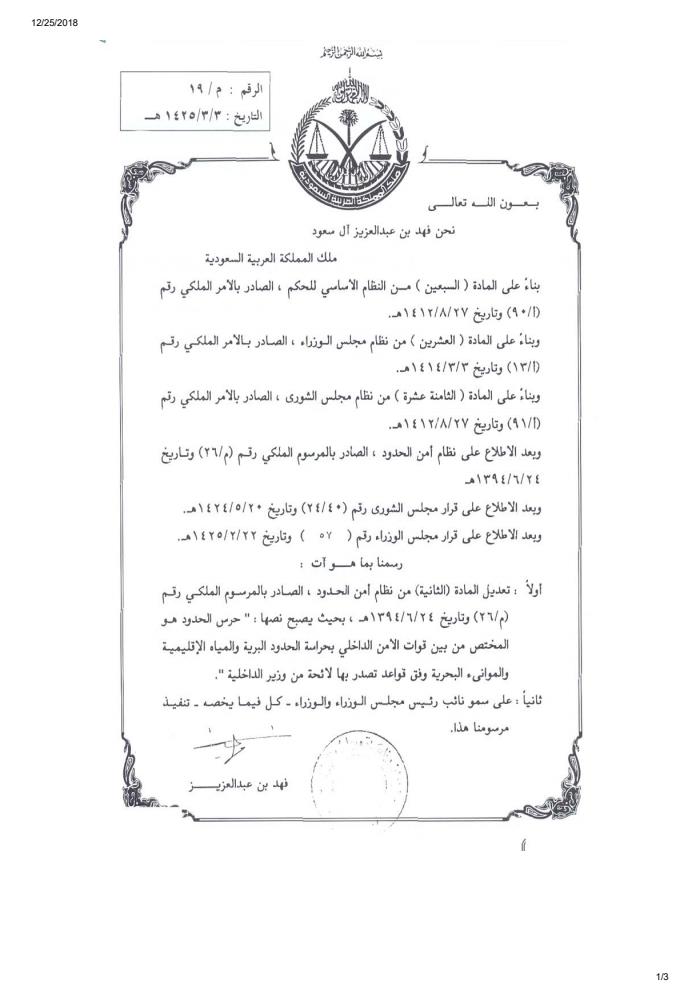 12/25/2018
بسم الله الرحمن الرحيم
الرقم : م / ١٩
التاريخ : ١٤٢٥/٣/٣ هـ
بعون الله تعالى
نحن فهد بن عبدالعزيز آل سعود
ملك المملكة العربية السعودية
بناءً على المادة ( السبعين ) من النظام الأساسي للحكم ، الصادر بالأمر الملكي رقم
(أ/٩٠) وتاريخ ١٤١٢/٨/٢٧هـ.
وبناءً على المادة ( العشرين ) من نظام مجلس الوزراء ، الصادر بالأمر الملكي رقم
(أ/١٣) وتاريخ ١٤١٤/٣/٣هـ.
وبناءً على المادة ( الثامنة عشرة ) من نظام مجلس الشورى ، الصادر بالأمر الملكي رقم
(أ/٩١) وتاريخ ١٤١٢/٨/٢٧هـ.
وبعد الاطلاع على نظام أمن الحدود ، الصادر بالمرسوم الملكي رقم (م/٢٦) وتاريخ
١٣٩٤/٦/٢٤هـ
وبعد الاطلاع على قرار مجلس الشورى رقم (٢٤/٤٠) وتاريخ ١٤٢٤/٥/٢٠هـ.
وبعد الاطلاع على قرار مجلس الوزراء رقم ( ٥٧ ) وتاريخ ١٤٢٥/٢/٢٢هـ.
رسمنا بما هو آت :
أولاً : تعديل المادة (الثانية) من نظام أمن الحدود ، الصادر بالمرسوم الملكي رقم
(م/٢٦) وتاريخ ١٣٩٤/٦/٢٤هـ ، بحيث يصبح نصها : " حرس الحدود هو
المختص من بين قوات الأمن الداخلي بحراسة الحدود البرية والمياه الإقليمية
والموانىء البحرية وفق قواعد تصدر بها لائحة من وزير الداخلية ".
ثانياً : على سمو نائب رئيس مجلس الوزراء والوزراء ـ كل فيما يخصه ـ تنفيذ
مرسومنا هذا.
فهد بن عبدالعزيز
1/3